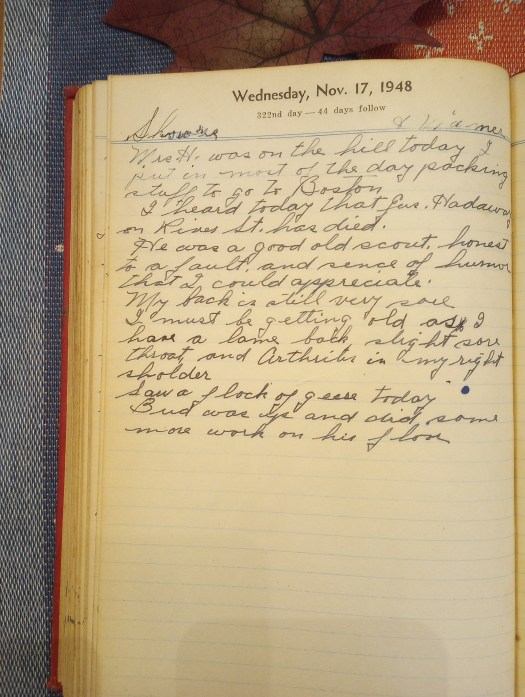 Wednesday, Nov. 17, 1948
322nd day — 44 days follow
Showers &
Mrs H. was on the hill today I
put in most of the day packing
stuff to go to Boston
I heard today that Gus. Hadaway
on Rines St. has died.
He was a good old scout. honest
to a fault. and sence of humor
that I could appreciate.
My back is still very sore
I must be getting old as I
have a lame back, slight sore
throat, and Arthritis in my right
sholder
Saw a flock of geese today
Bud was up and did some
more work on his floor